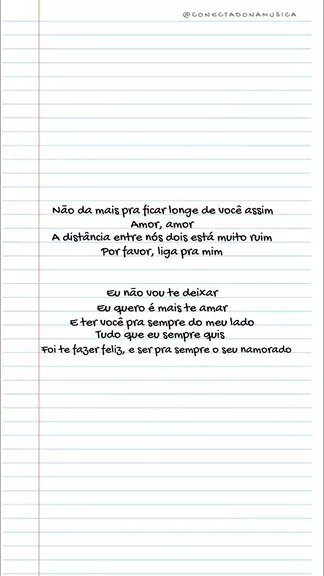 @CONECTADONAMUSICA
Não da mais pra ficar longe de você assim
Amor, amor
A distância entre nós dois está muito ruim
Por favor, liga pra mim
Eu não vou te deixar
Eu quero é mais te amar
E ter você pra sempre do meu lado
Tudo que eu sempre quis
Foi te fazer feliz, e ser pra sempre o seu namorado